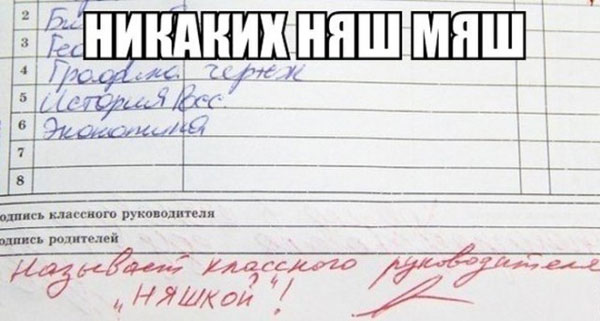 НИКАКИХ НЯШ МЯШ
2
3 Гео
4 Графика чертеж
5 История Росс.
6 Экономика
7
8
одпись классного руководителя
одпись родителей
Называет классного руководителя
„НЯШКОЙ"!